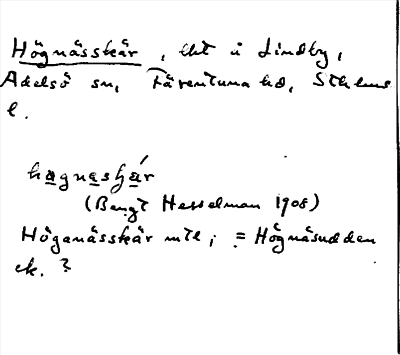 Högnässkär, lht i Lindby,
Adelsö sn, Färentuna hd, Sthlms
l.
hagnasHár
(Bengt Hesselman 1908)
Höganässkär mtl; = Högnäsudden
ek.?